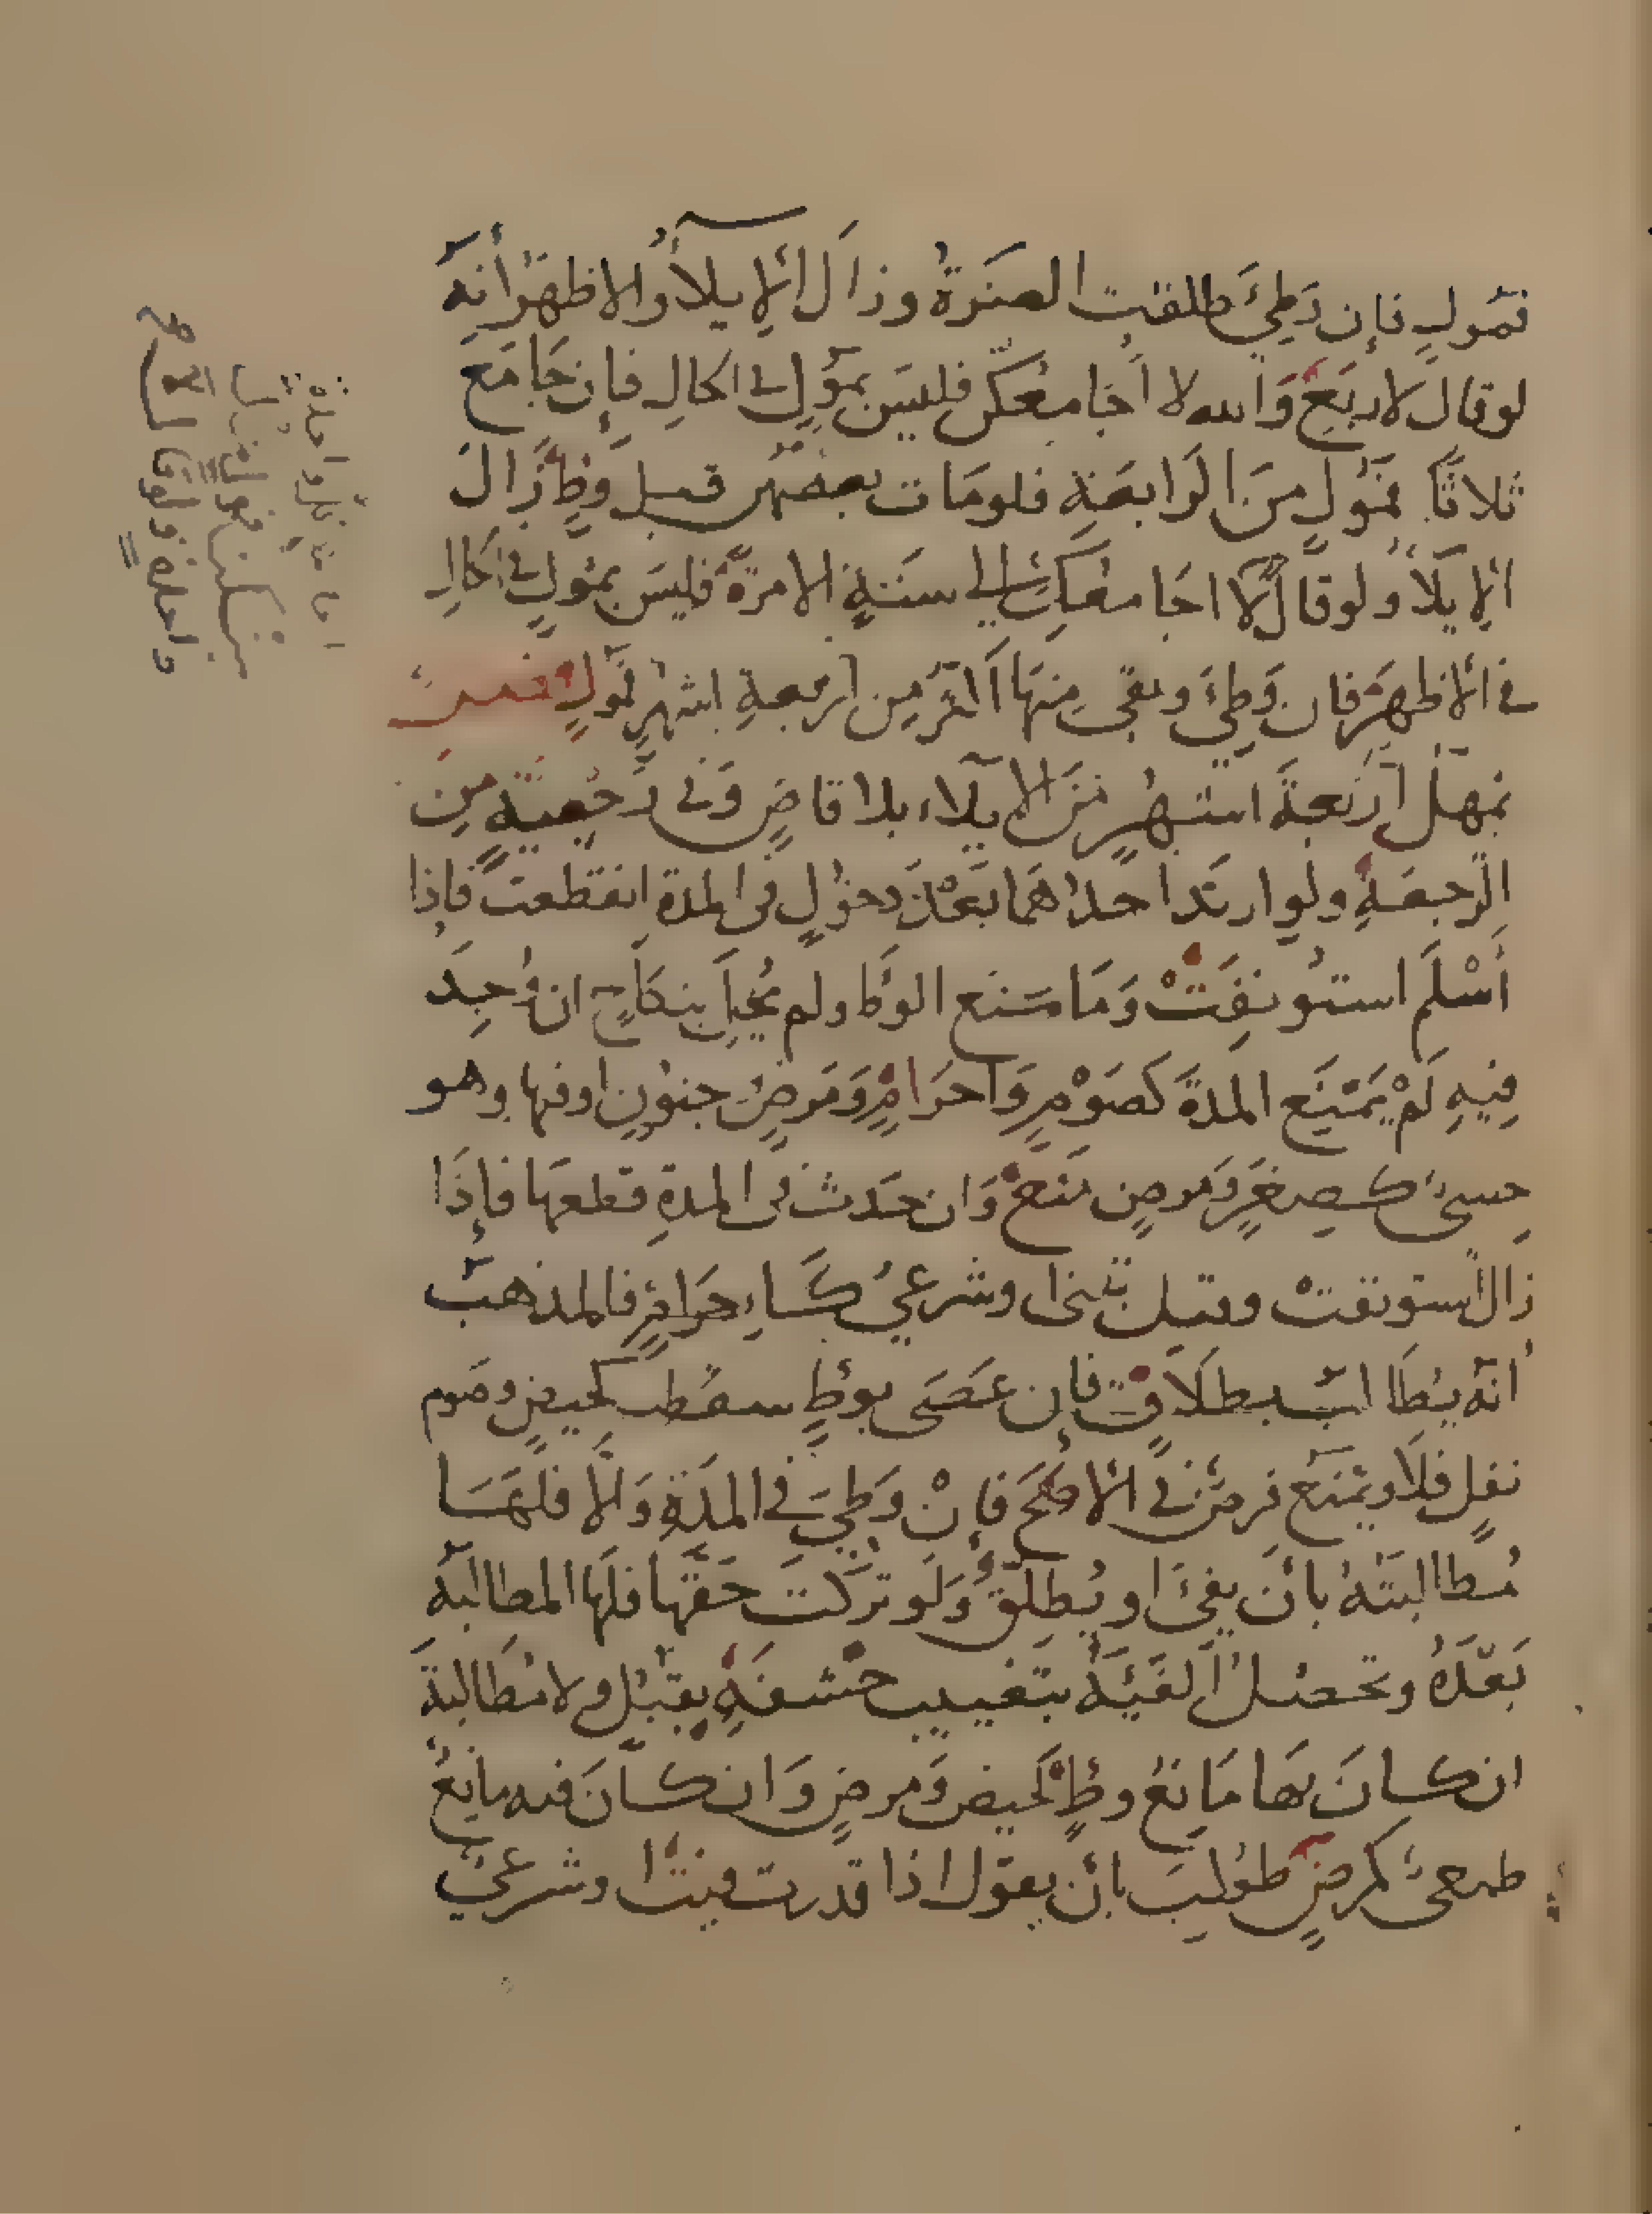 فمول فإن وطئ طلقت الضرة وزال الإيلاء والاظهر أنه
لو قال لاربع والله لا أجامعكن فليس بمول في الحال فإن جامع
ثلاثا فمول من الرابعة فلو مات بعضهن قبل وطئ زال
الإيلاء ولو قال لا اجامعك إلى سنة الا مرة فليس بمول في الحال
في الاظهر فان وطئ وبقي منها اكثر من اربعة اشهر فمول فصل
يمهل أربعة اشهر من الإيلاء بلا قاض وفي رجعية من
الرجعة ولو ارتد احدهما بعد دخول في المدة انقطعت فإذا
أسلم استونفت وما منع الوطا ولم يخل بنكاح ان وجد
فيه لم يمنع المدة كصوم واحرام ومرض وجنون او فيها وهو
حسي كصغر ومرض منع وان حدث في المدة قطعها فإذا
زال استونفت وقيل تبنى او شرعي كإحرام فالمذهب
أنه يطالب بطلاق فإن عصى بوطئ سقطت
نفل فلا ويمنع فرض في الأصح فإن وطئ في المدة وإلا فلها
مطالبته بأن يفئ او يطلق ولو تركت حقها فلها المطالبة
بعده وتحصل الفيئة بتغييب حشفة بقبل ولا مطالبة
ان كان بها مانع وطئ كحيض ومرض وان كان فيه مانع
طبعي كمرض طولب بأن يقول اذا قدرت فئت او شرعي